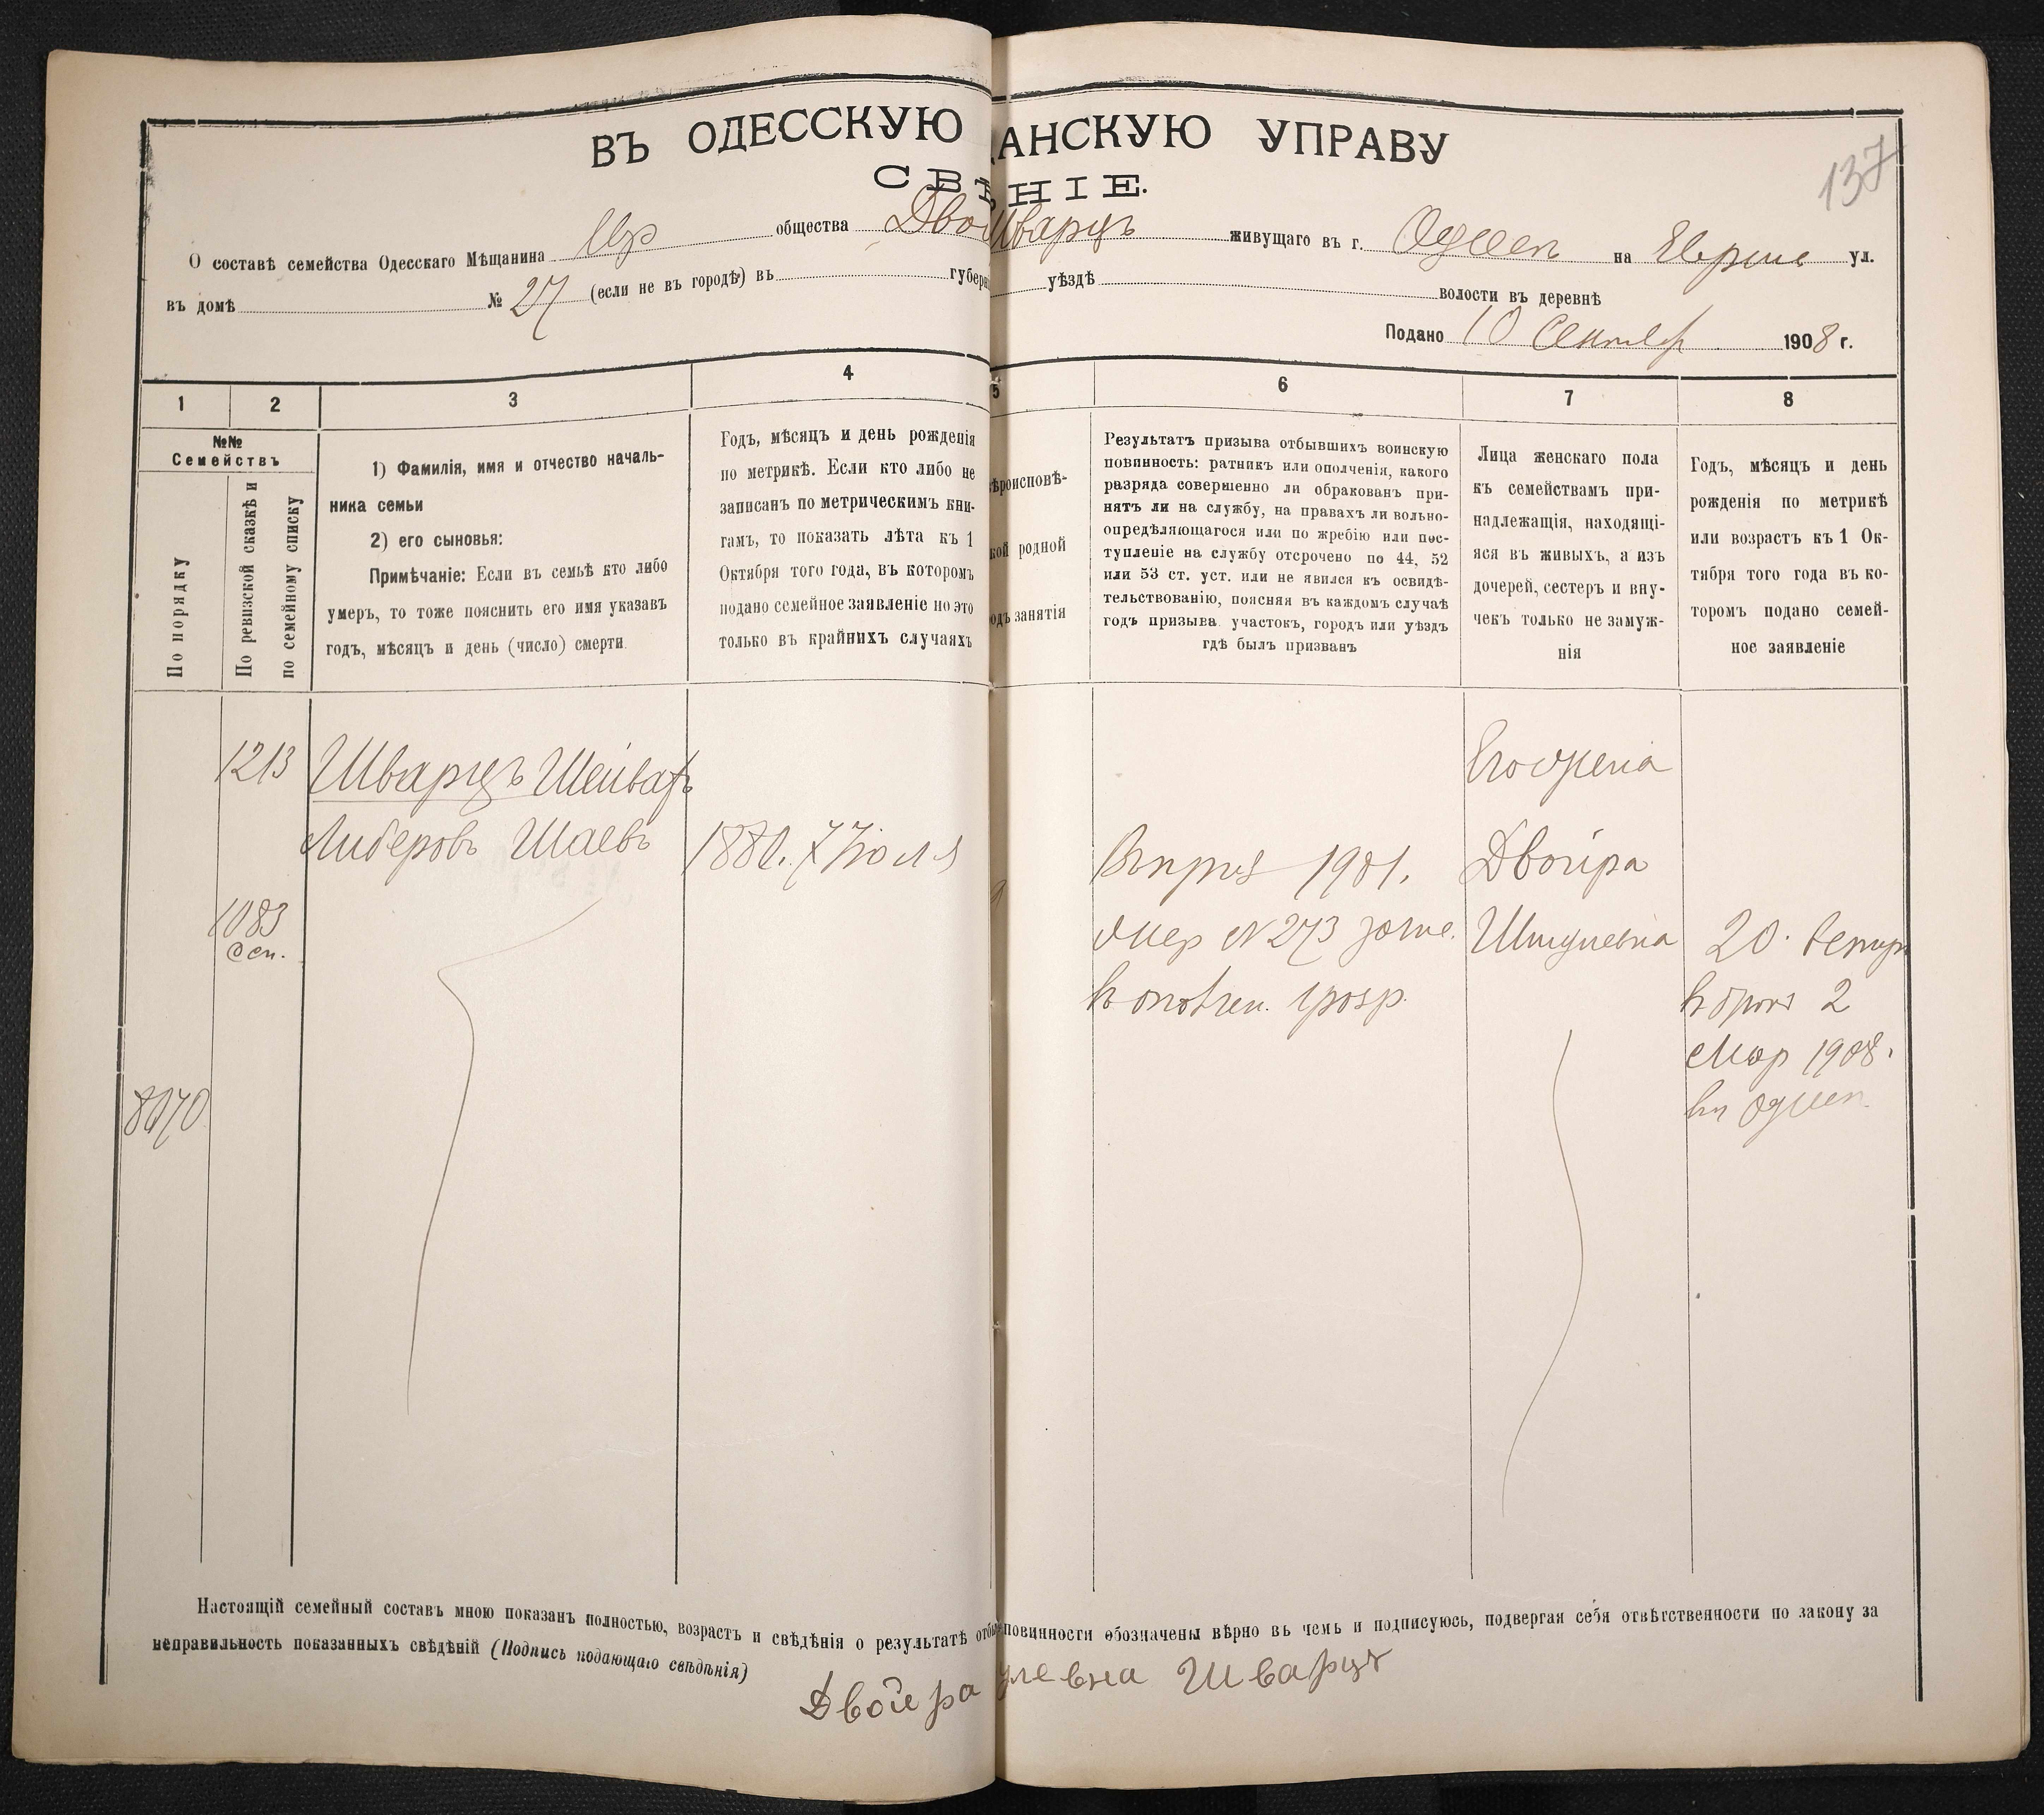 ВЪ ОДЕССКУЮ АНСКУЮ УПРАВУ
СВѢНІЕ.
137
О составѣ семейства Одесскаго Мѣщанина общества Дво Шварцъ живущаго въ г. Одессѣ на ул.
въ домѣ № 27 (если не въ городѣ) въ губерн уѣздѣ волости въ деревнѣ
Подано 10 Сентябр 1908 г.
1 2 3 4 5 6 7 8
№№
Семействъ
По порядку
По ревизской сказкѣ и
по семейному списку
1) Фамилія, имя и отчество началь-
ника семьи
2) его сыновья:
Примѣчаніе: Если въ семьѣ кто либо
умеръ, то тоже пояснить его имя указавъ
годъ, мѣсяцъ и день (число) смерти.
Годъ, мѣсяцъ и день рожденія
по метрикѣ. Если кто либо не
записанъ по метрическимъ кни-
гамъ, то показать лѣта къ 1
Октября того года, въ которомъ
подано семейное заявленіе но это
только въ крайнихъ случаяхъ
ѣроисповѣ-
кой родной
одъ занятія
Результатъ призыва отбывшихъ воинскую
повинность: ратникъ или ополченія, какого
разряда совершенно ли обракованъ при-
нятъ ли на службу, на правахъ ли вольно-
опредѣляющагося или по жребію или пос-
тупленіе на службу отсрочено по 44, 52
или 53 ст. уст. или не явился къ освидѣ-
тельствованію, поясняя въ каждомъ случаѣ
годъ призыва участокъ, городъ или уѣздъ
гдѣ былъ призванъ
Лица женскаго пола
къ семействамъ при-
надлежащія, находящі-
яся въ живыхъ, а изъ
дочерей, сестеръ и вну-
чекъ только не замуж-
нія
Годъ, мѣсяцъ и день
рожденія по метрикѣ
или возрастъ къ 1 Ок-
тября того года въ ко-
торомъ подано семей-
ное заявленіе
1213 Шварцъ Его жена
Шаевъ 1880. 7 Іюля 1901. Двойра
1083 № 273 зач. 20.
Сем.
в ополчен. 1 разр. в 2
Мар 1908.
8070 в Одессѣ
Настоящій семейный составъ мною показанъ полностью, возрастъ и свѣдѣнія о результатѣ отбы повинности обозначены вѣрно въ чемъ и подписуюсь, подвергая себя отвѣтственности по закону за
неправильность показанныхъ свѣдѣній (Подпись подающаго свѣдѣнія)
Двойра улевна Шварцъ